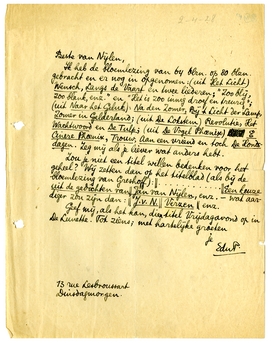 Beste van Nijlen,
Ik heb de bloemlezing van 64 blzn. op 80 blzn.
gebracht en er nog in opgenomen: (uit Het Licht)
Wensch, Langs de Vaart en twee liederen: "Zoo blij,
zoo blank, enz." en "Het is zoo innig droef en treurig";
(uit Naar 't Geluk) Na den Zomer, Bij 't Licht der Lamp,
Zomer in Gelderland; (uit De Lokstem) Revolutie, Het
Wachtwoord en De Tulp; (uit De Vogel Phoenix) &
Genera Phoenix, Trouw, Aan een vriend en toch De Zonde-
dagen. Zeg mij als je liever wat anders hebt.
Zou je niet een titel willen bedenken voor het
geheel? Wij zetten dan op het titelblad (als bij de
bloemlezing van Greshoff):
Een keuze
uit de gedichten van Jan van Nijlen, enz. — wat aar-
diger zou zijn dan: J.v.N. Verzen, enz.
Geef mij, als het kan, dien titel Vrijdagavond op in
de Lunette. Tot ziens; met hartelijke groeten
je
EduP.
73 rue Lesbroussart
Dinsdagmorgen.